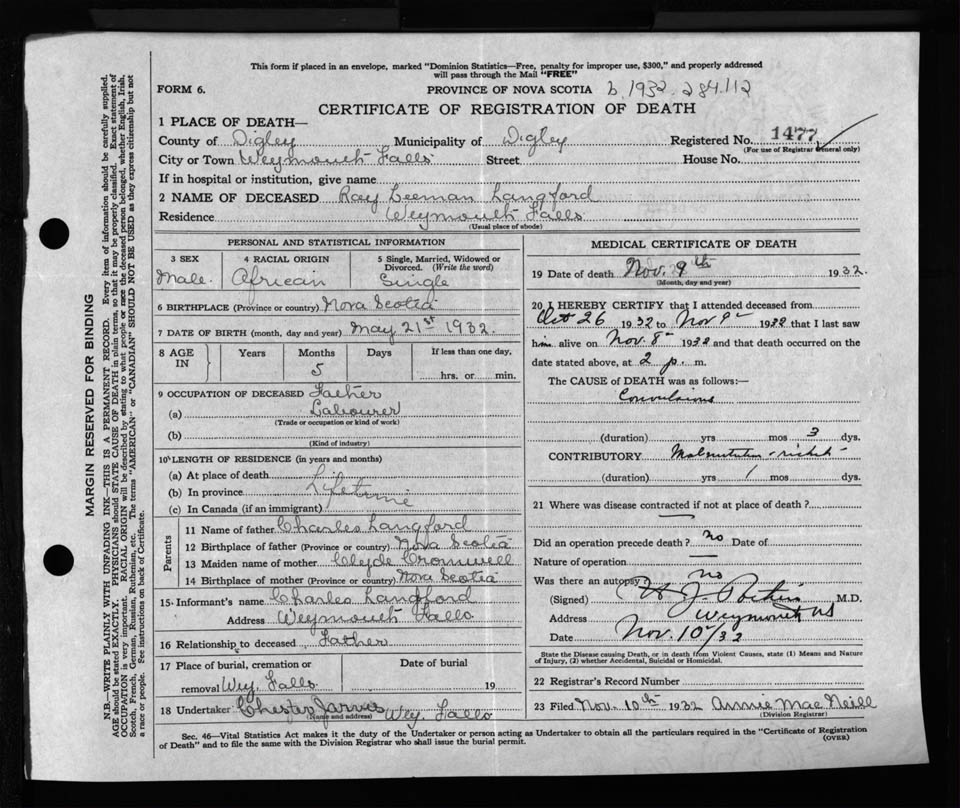 This form if placed in an envelope, marked "Dominion Statistics—Free, penalty for improper use, $300," and properly addressed
will pass through the Mail "FREE"
FORM 6. PROVINCE OF NOVA SCOTIA b.1932.284112
CERTIFICATE OF REGISTRATION OF DEATH
1 PLACE OF DEATH—
County of Digley Municipality of Digley Registered No. 1477
(For use of Registrar General only)
City or Town Weymouth Falls Street House No.
If in hospital or institution, give name
2 NAME OF DECEASED Ray Leeman Langford
Residence Weymouth Falls
(Usual place of abode)
PERSONAL AND STATISTICAL INFORMATION
3 SEX 4 RACIAL ORIGIN 5 Single, Married, Widowed or
Divorced. (Write the word)
Male. African Single
6 BIRTHPLACE (Province or country) Nova Scotia
7 DATE OF BIRTH (month, day and year) May 21st 1932.
8 AGE IN Years Months Days If less than one day,
5 hrs. or min.
9 OCCUPATION OF DECEASED Father
(a) Labourer
(Trade or occupation or kind of work)
(b)
(Kind of industry)
10 LENGTH OF RESIDENCE (in years and months)
(a) At place of death
(b) In province Lifetime
(c) In Canada (if an immigrant)
Parents
11 Name of father Charles Langford
12 Birthplace of father (Province or country) Nova Scotia
13 Maiden name of mother Clyde Cromwell
14 Birthplace of mother (Province or country) Nova Scotia
15 Informant's name Charles Langford
Address Weymouth Falls
16 Relationship to deceased Father
17 Place of burial, cremation or Date of burial
removal Wey. Falls 19
18 Undertaker Chester Jarvis Wey. Falls
(Name and address)
MEDICAL CERTIFICATE OF DEATH
19 Date of death Nov. 9th 1932.
(Month, day and year)
20 I HEREBY CERTIFY that I attended deceased from
Oct 26 1932 to Nov 9 1932 that I last saw
him alive on Nov. 8 1932 and that death occurred on the
date stated above, at 2 p. m.
The CAUSE of DEATH was as follows:—
Convulsions
(duration) yrs mos 3 dys.
CONTRIBUTORY Malnutrition - rickets
(duration) yrs 1 mos dys.
21 Where was disease contracted if not at place of death?
Did an operation precede death? no Date of
Nature of operation —
Was there an autopsy no
(Signed) M.D.
Address Weymouth NS
Date Nov. 10/32
State the Disease causing Death, or in death from Violent Causes, state (1) Means and Nature
of Injury, (2) whether Accidental, Suicidal or Homicidal.
22 Registrar's Record Number
23 Filed Nov. 10th 1932 Annie MacNeill
(Division Registrar)
Sec. 46—Vital Statistics Act makes it the duty of the Undertaker or person acting as Undertaker to obtain all the particulars required in the "Certificate of Registration
of Death" and to file the same with the Division Registrar who shall issue the burial permit. (OVER)
MARGIN RESERVED FOR BINDING
N.B.—WRITE PLAINLY WITH UNFADING INK—THIS IS A PERMANENT RECORD. Every item of information should be carefully supplied.
AGE should be stated EXACTLY. PHYSICIANS should STATE CAUSE OF DEATH in plain terms, so that it may be properly classified. Exact statement of
OCCUPATION is very important. RACIAL ORIGIN will be described by stating to what people or race the deceased person belonged, whether English, Irish,
Scotch, French, German, Russian, Ruthenian, etc. The terms "AMERICAN" or "CANADIAN" SHOULD NOT BE USED as they express citizenship but not
a race or people. Fee instructions on back of Certificate.